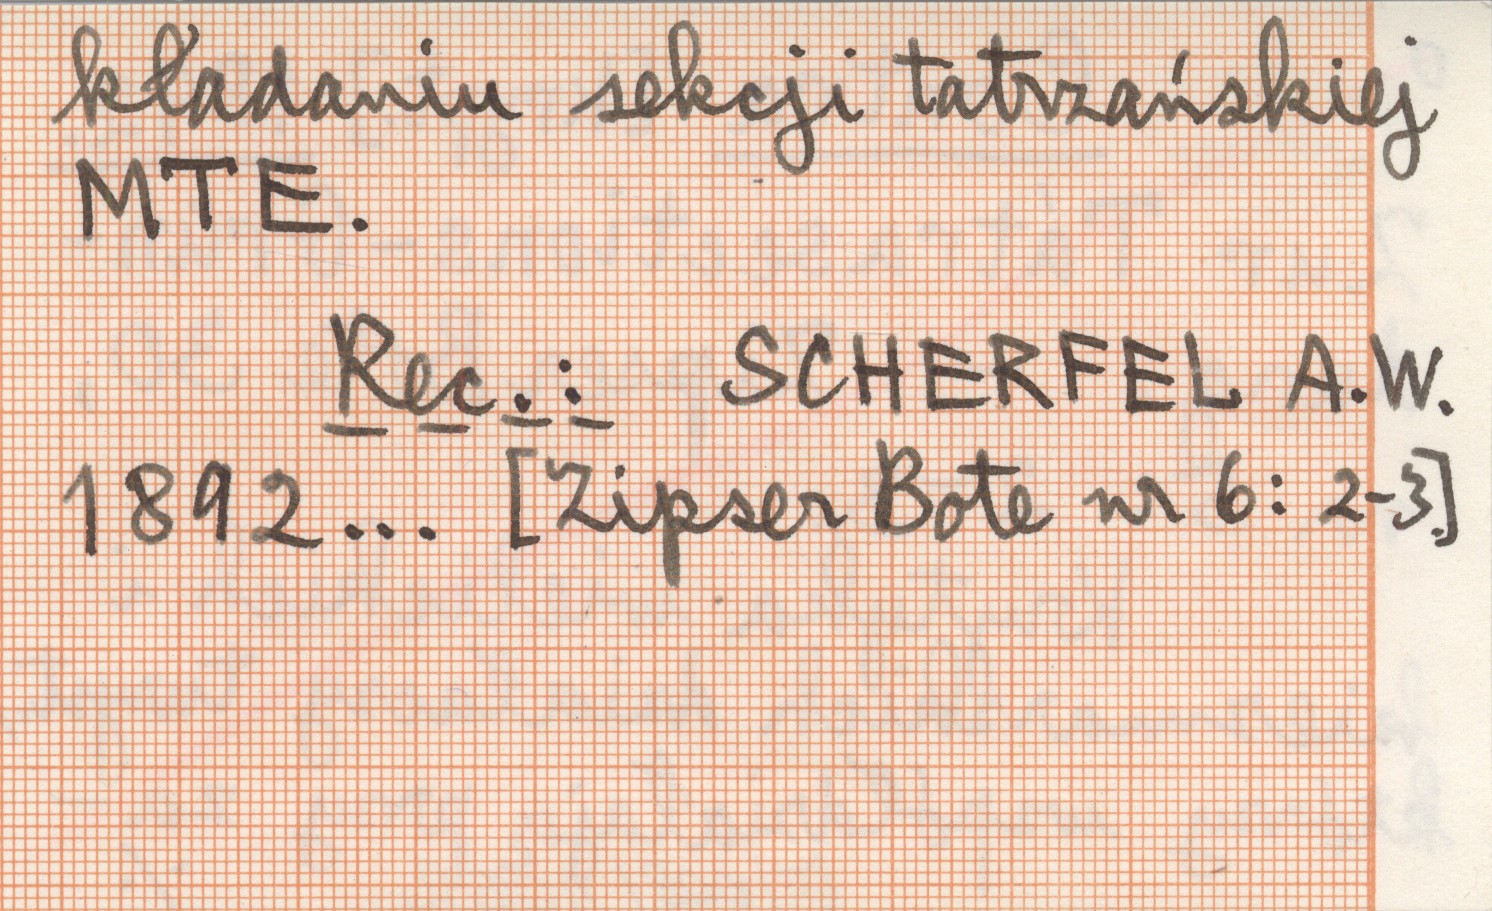 kładaniu sekcji tatrzańskiej
MTE.
Rec.: SCHERFEL A.W.
1892... [Zipser Bote nr 6: 2-3.]